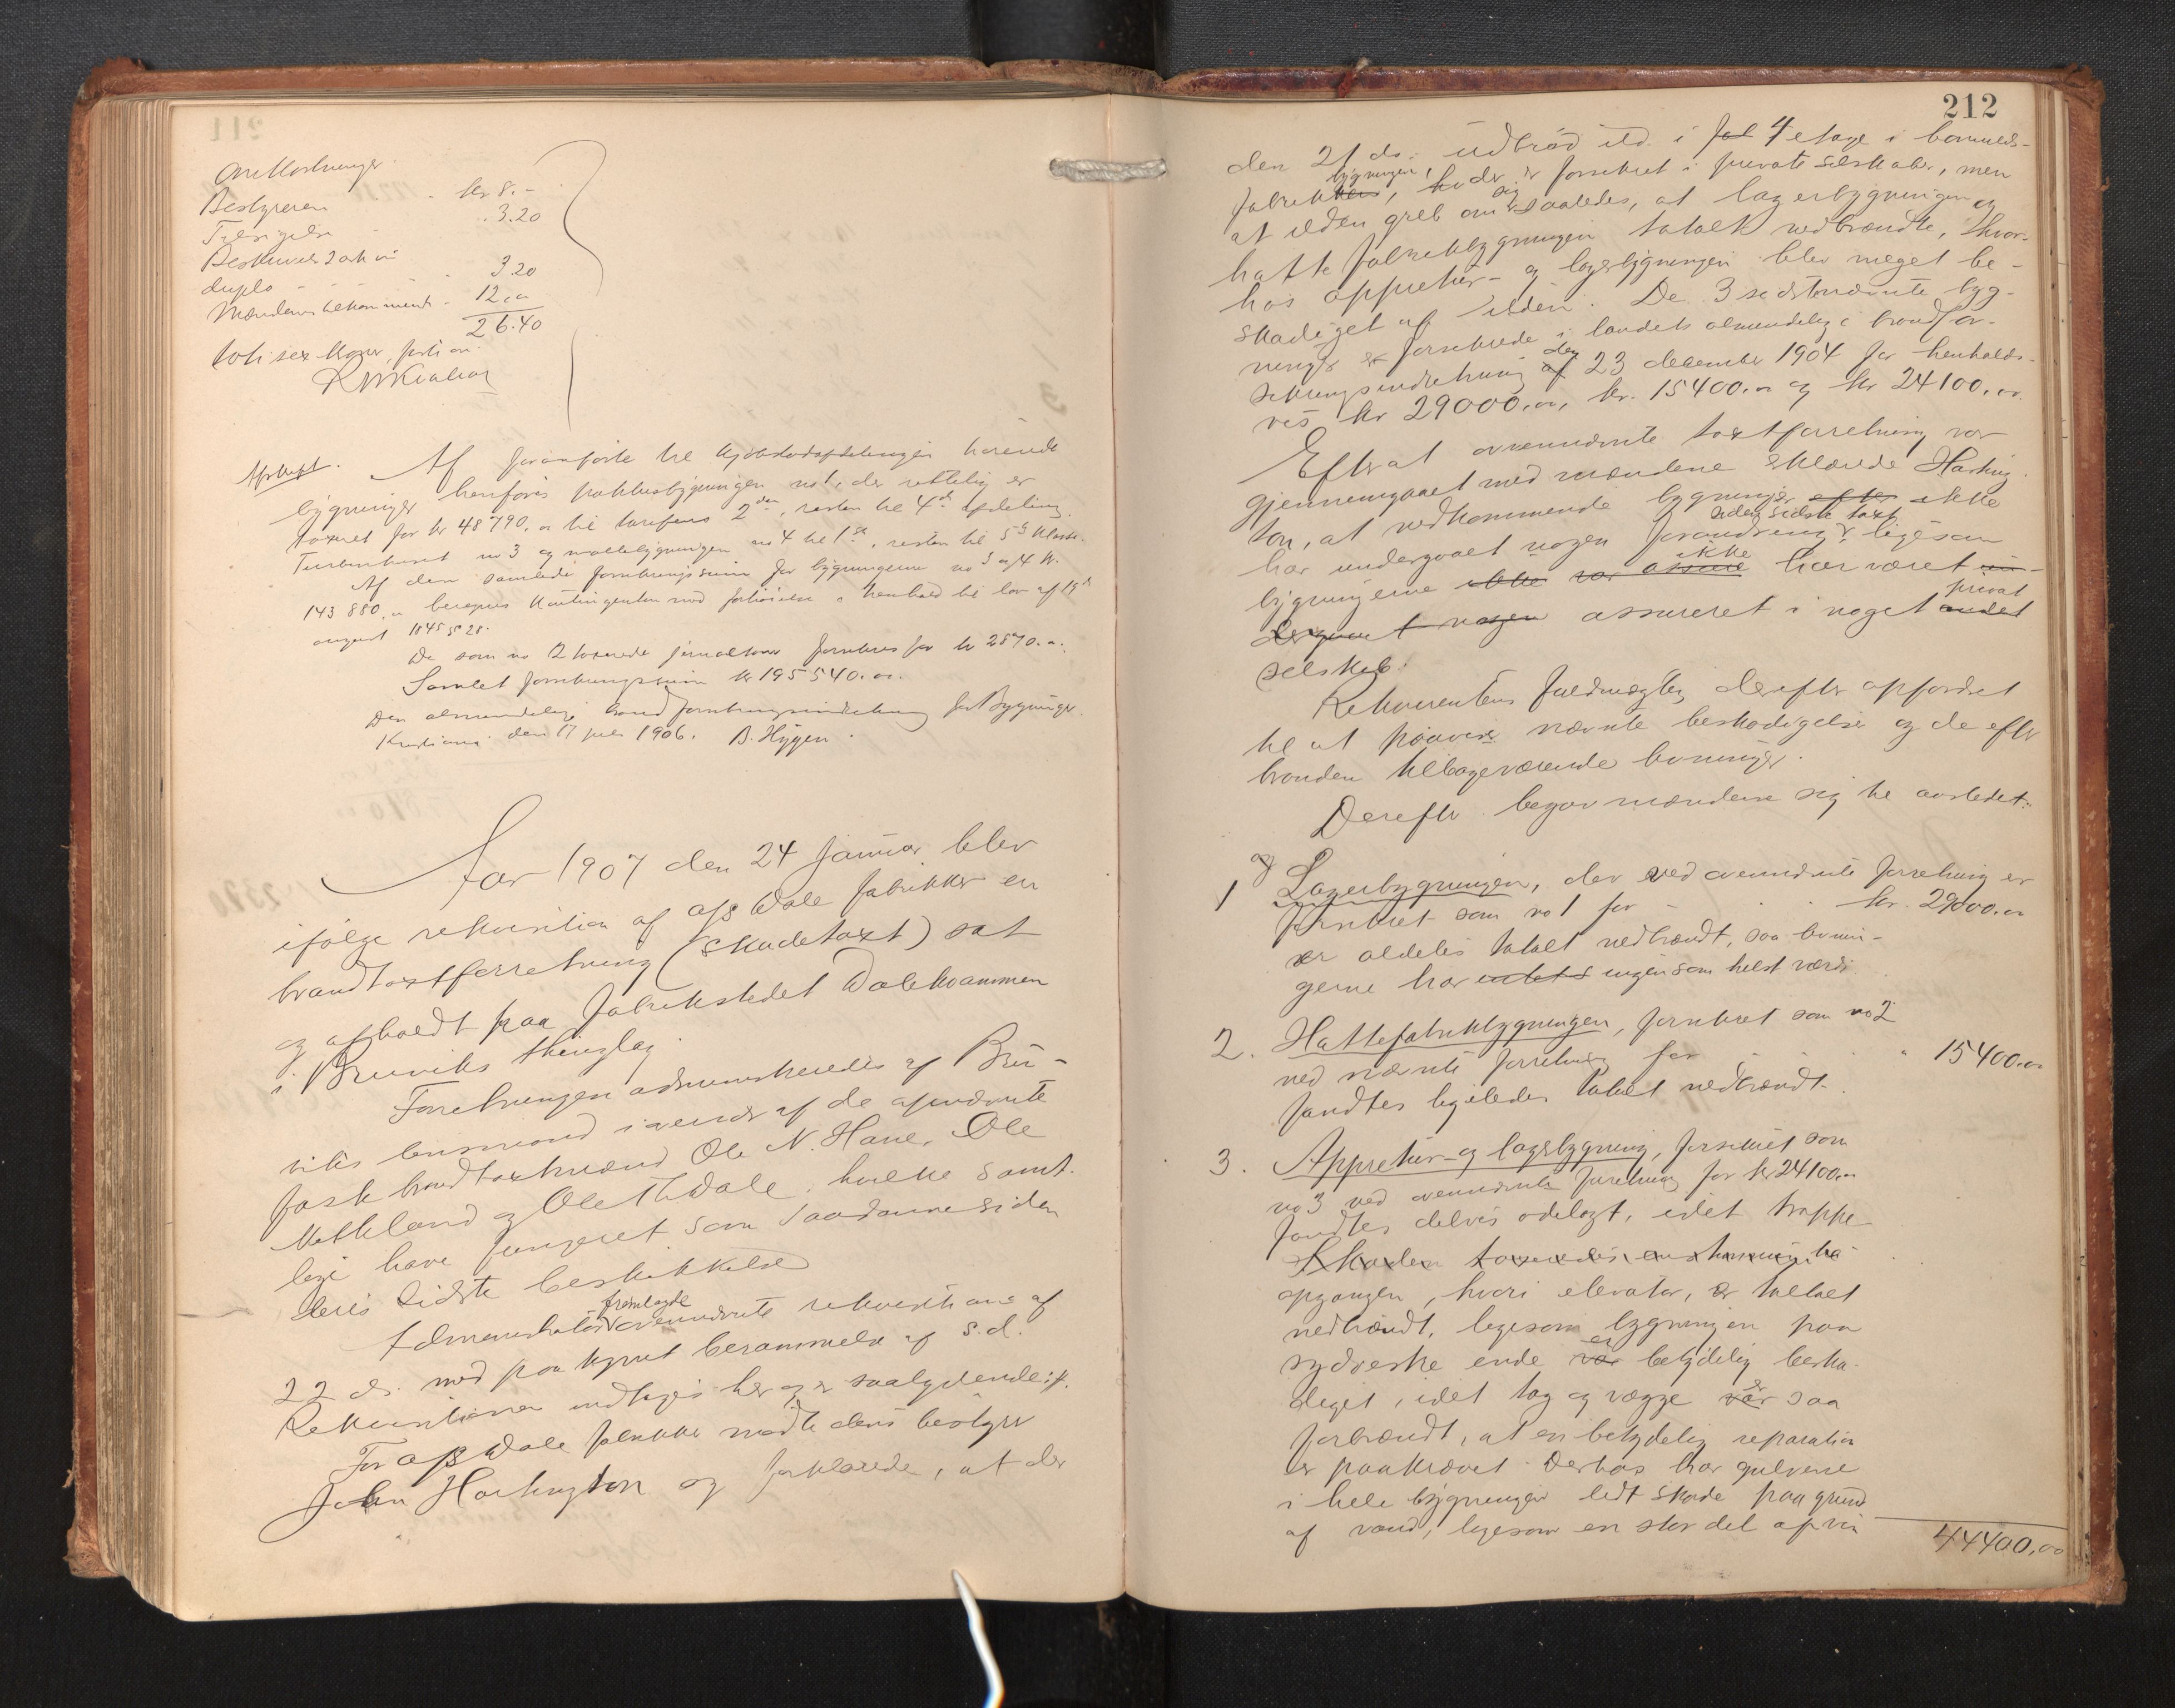 Omkostninger.
Bestyreren kr 8.-
Tilsigelse " 3.20
Beskrivels 2 ark in
duplo 3.20
Mændenes tilkommende 12,00
26.40
toti sex kroner, forti øre.
Afskrift. Af foranførte til Kjøbstadafdelingen hørende
bygninger henføres pakhusbygningen no 1, der rettelig er
taxeret for kr 48790.00 til tarifens 2den, resten til 4de afdeling.
Turbinhuset no 3 og møllebygningen no 4 til 1ste, resten til 5te Klasse.
Af den samlede forsikringssum for bygningerne no 3 og 4 kr.
143 880.00 beregnes Kontingenten med forhøielse i henhold til lov af 19de
august 1845 § 28.
De som no 12 taxerede forsikres for kr 2870.00.
Samlet forsikringssum kr 195540.00.
Den almindelige brandforsikringsindretning for Bygninger.
Kristiania den 17 juli 1906. B. Hygen.
Aar 1907 den 24 januar blev
ifølge rekvisition af a/s Dale fabrikker en
brandtaxtforretning (skadetaxt) sat
og afholdt paa fabrikstedet Dalekvammen
i Bruviks thinglag.
Forretningen administreredes af Bru-
viks lensmand i nærvær af de opnævnte
faste brandtaxtmænd Ole N. Hane, Ole
Metteland og Ole Th Dale, hvilke samt-
lige have fungeret som saadanne siden
deres sidste beskikkelse
Administrator fremlagde ovennævnte rekvisitions af
22 ds. med paategnet berammelse af s.d.
Rekvisitionen indtages her og er saalydende: ./.
For a/s Dale fabrikker mødte dens bestyrer
John Harlington og forklarede, at der
212
den 21 ds. udbrød ild i fab 4 etage i bomulds-
fabrikkens bygningen, der er forsikret i private selskaber, men
at ilden greb om sig saaledes, at lagerbygningen og
hattefabrikbygningen totalt nedbrændte, hvor-
hos appretur- og lagerbygningen blev meget be-
skadiget af ilden. De 3 sidstnævnte byg-
ninger er forsikrede i landets almindelige brandfor-
sikringsindretning af den 23 december 1904 for henholds-
vis kr 29000.00, kr. 15400.00 og kr 24100.00.
Efterat ovennævnte taxtforretning var
gjennemgaaet med mændene erklærede Harling-
ton, at vedkommende bygninger efter ikke
har undergaaet nogen forandring siden sidste taxt, ligesom
bygningerne ikke var assure ikke har været
nogen assureret i noget andet privat
selskab.
Rekvirentens fuldmægtig derefter opfordret
til at paavise nævnte beskadigelser og de efter
branden tilbageværende levninger.
Derefter begav mændene sig til aastedet:
og
1 Lagerbygningen, der ved ovennævnte forretning er
forsikret som no 1 for kr. 29000.00
er aldeles totalt nedbrændt, saa levnin-
gerne har intets ingen som helst værdi.
2. Hattefabrikbygningen, forsikret som no 2
ved nævnte forretning for " 15400.00
fandtes ligeledes totalt nedbrændt.
3. Appretur- og lagerbygning, forsikret som
no 3 ved ovennævnte forretning for kr 24100.00
fandtes delvis ødelagt, idet trappe-
Skaden taxeredes
opgangen, hvori elevator, er totalt
nedbrændt, ligesom bygningen paa
sydvestre ende var er betydelig beska-
diget, idet tag og vægge var er saa
forbrændt, at en betydelig reparation
er paakrævet. Derhos har gulvene
i hele bygningen lidt skade paa grund
af vand, ligesom en stor del af vin
44400,00